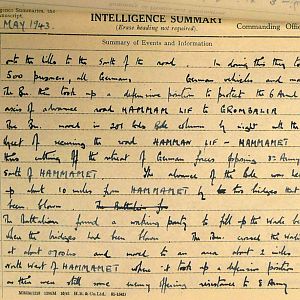 gence Summaries, the
nuscript.
MAY 1943.
INTELLIGENCE SUMMARY
(Erase heading not required).
Commanding Offic
Summary of Events and Information
onto the hills to the South of the road. In doing this they to
500 prisoners, all Germans. German vehicles and ma
The Bn then took up a defensive position to protect the 6 Armd
axis of advance road HAMMAM LIF to GROMBALIA
The Bn. moved in 201 Gds Bde column by night with the
object of securing the road HAMMAM LIF - HAMMAMET
thus cutting off the retreat of German forces opposing 8th Army
South of HAMMAMET. The advance of the Bde was held
up about 10 miles from HAMMAMET by the bridges that
been blown.
The Battalion found a working party to fill up the Wadi
where the bridges had been blown. The Bn. crossed the Wadi
at about 0700hrs and moved to an area about 2 miles
North West of HAMMAMET where it took up a defensive position
as there were still some enemy offering resistance to 8 Army